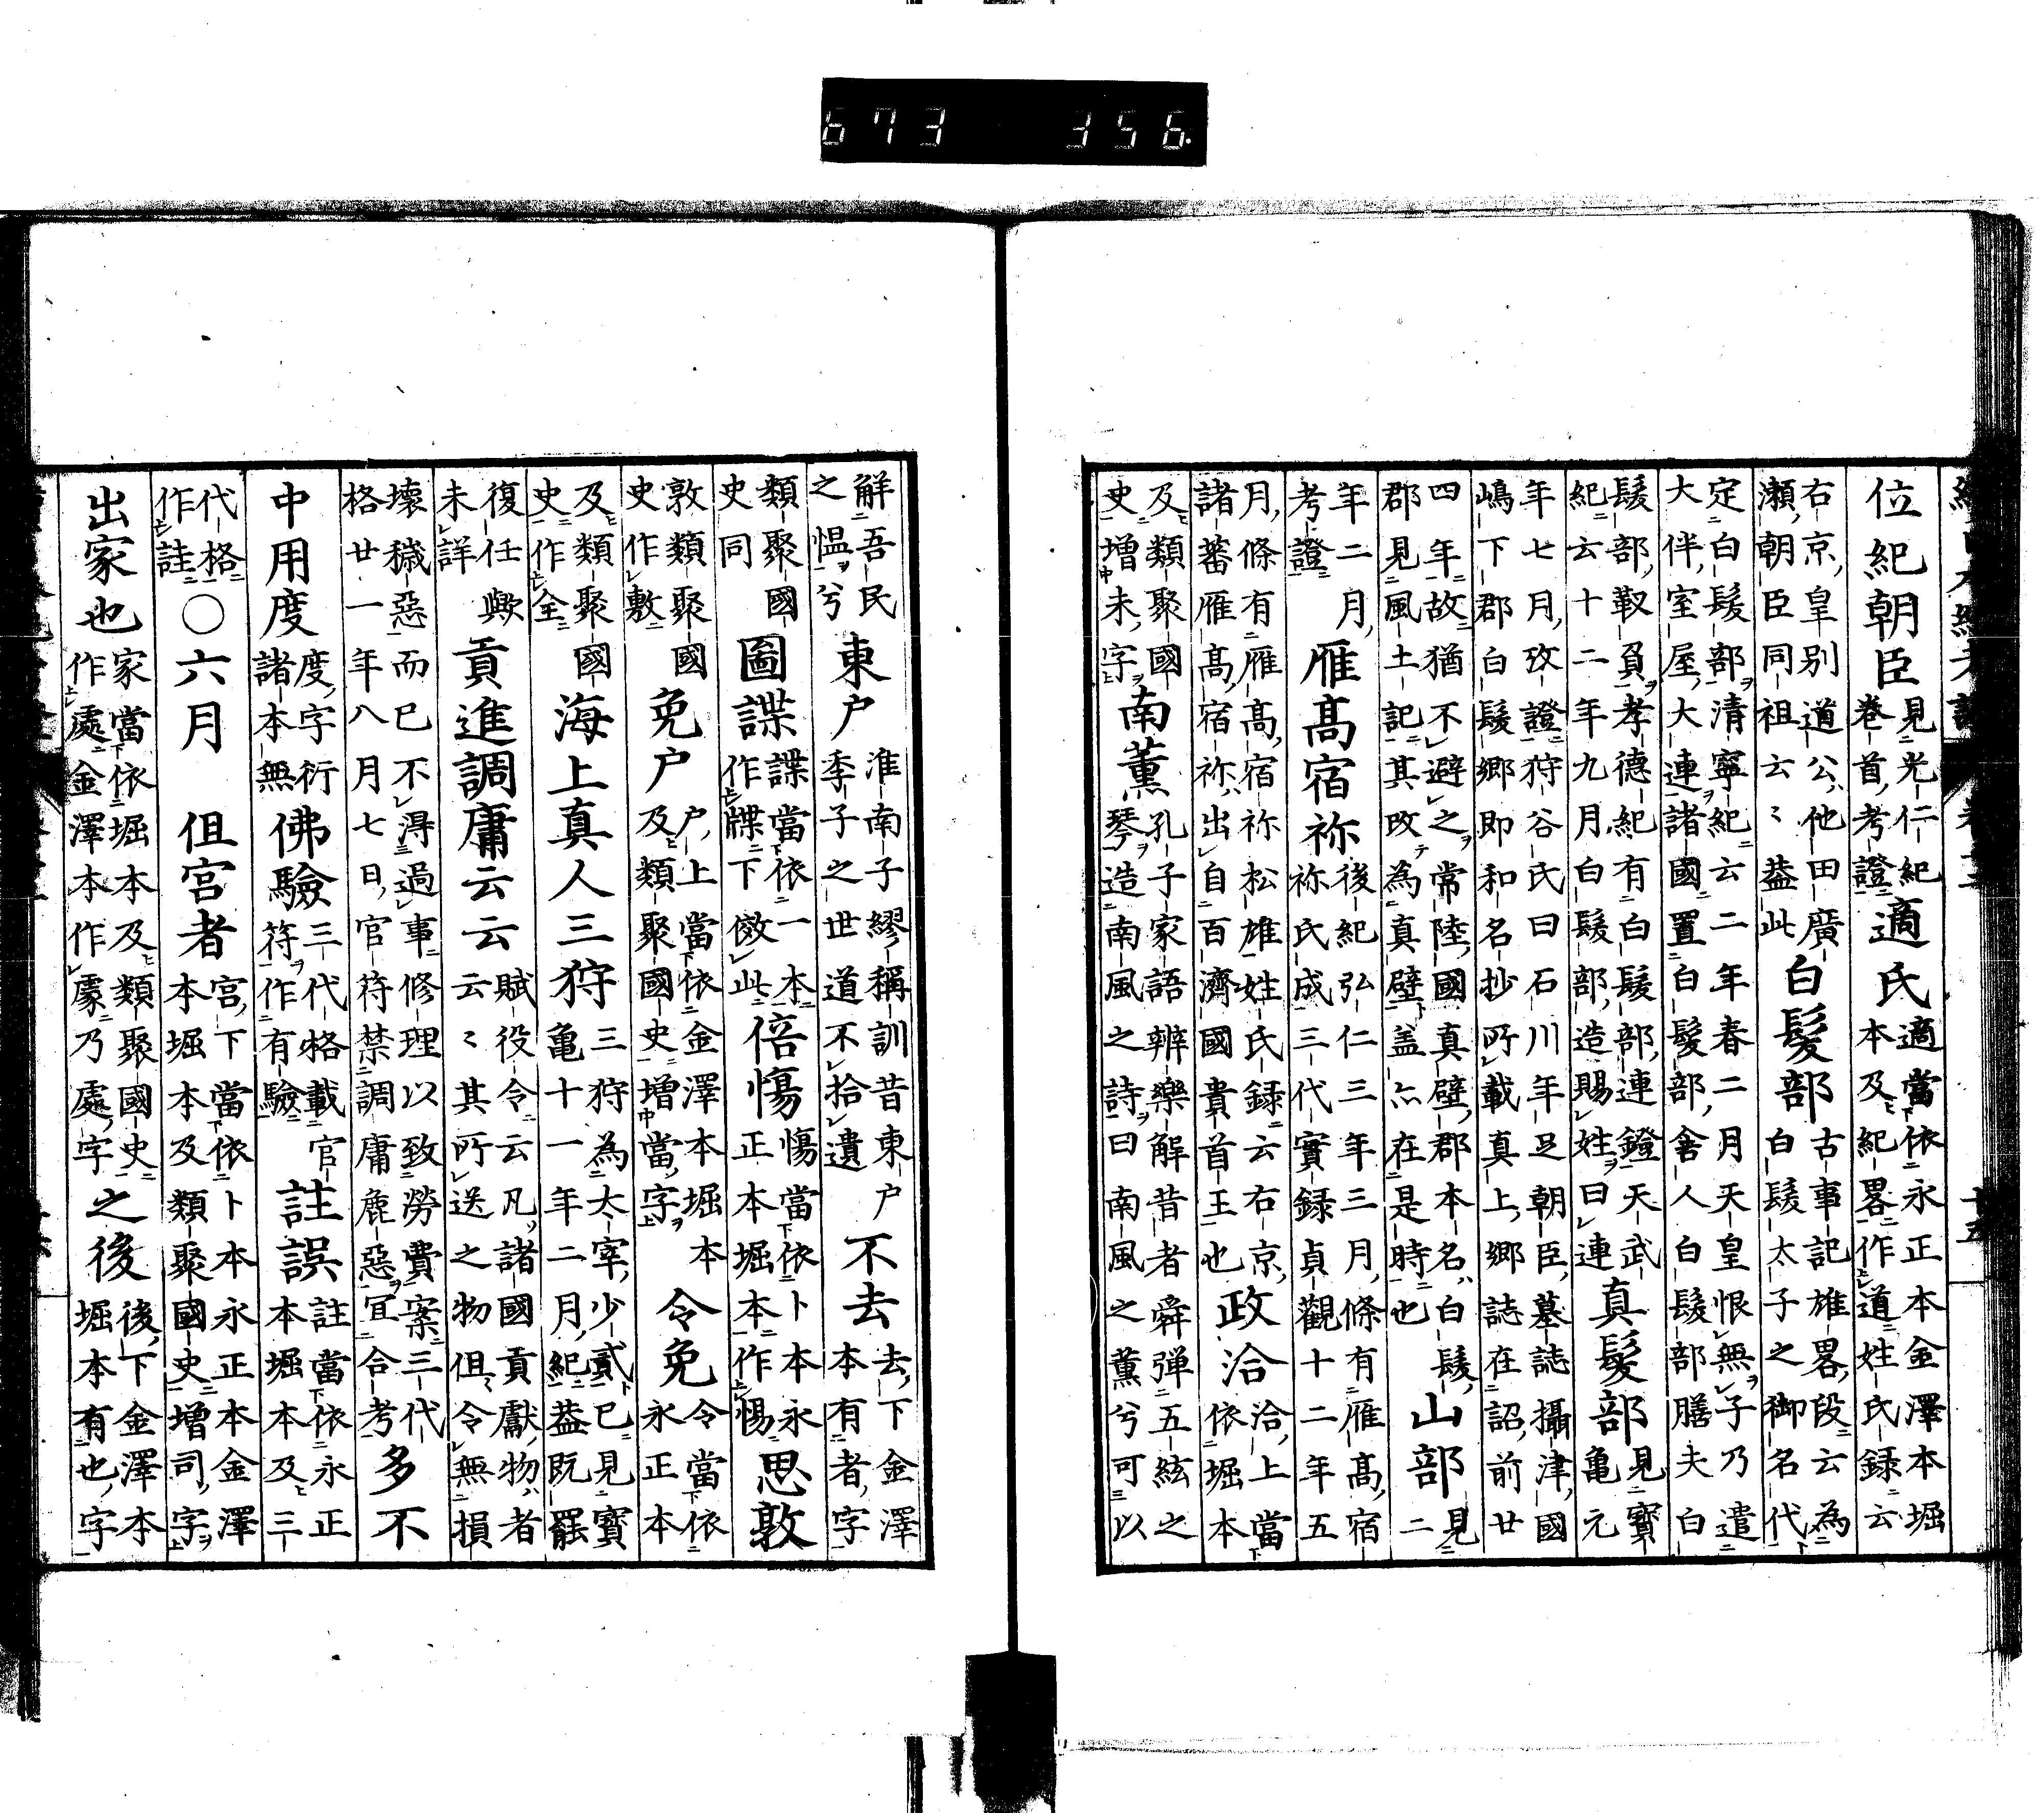 位紀朝臣見光仁紀卷首考證適氏適當依永正本金澤本堀本及紀畧作道姓氏録云
右京皇别道公他田廣瀬朝臣同祖云〻葢此白髪部古事記雄畧段云為白髮太子之御名代
定白髪部清寧紀云二年春二月天皇恨無子乃遣大伴室屋大連諸國置白髪部舍人白髮部膳夫白
髮部靫負孝德紀有白髮部連鐙天武紀云十二年九月白髮部造賜姓曰連真髪部見寳亀元
年七月攷證狩谷氏曰石川年足朝臣墓誌攝津國嶋下郡白髮郷即和名抄所載真上郷誌在詔前廿
四年故猶不避之常陸國真壁郡本名白髮郡見風土記其改為真壁盖亦在是時也山部見二
年二月考證雁髙宿祢後紀弘仁三年三月條有雁髙宿祢氏成三代實録貞觀十二年五
月條有雁髙宿祢松雄姓氏録云右京諸蕃雁髙宿祢出自百濟國貴首王也政洽洽上當依堀本
及類聚國史増未字南薰孔子家語辨樂解昔者舜弾五絃之琴造南風之詩曰南風之薰兮可以
解吾民之愠兮東户淮南子繆稱訓昔東户季子之世道不拾遺不去去下金澤本有者字
類聚國史同圖諜諜當依一本作牒下傚此倍愓愓當依卜本永正本堀本作惕思敦
敦類聚國史作敷免户户上當依金澤本堀本及類聚國史増當字令免令當依永正本
及類聚國史作全海上真人三狩三狩為太宰少貳已見寳亀十一年二月紀葢既罷
復任歟未詳貢進調庸云云賦役令云凡諸國貢獻物者云〻其所送之物但令無損
壊穢惡而已不得過事修理以致勞費案三代格廿一年八月七日官符禁調庸麁惡宜合考多不
中用度度字衍諸本無佛驗三代格載官符作有驗註誤註當依永正本堀本及三
代格作詿○六月　但宮者宮下當依卜本永正本金澤本堀本及類聚國史増司字
出家也家當依堀本及類聚國史作處金澤本作䖏乃處字之後後下金澤本堀本有也字